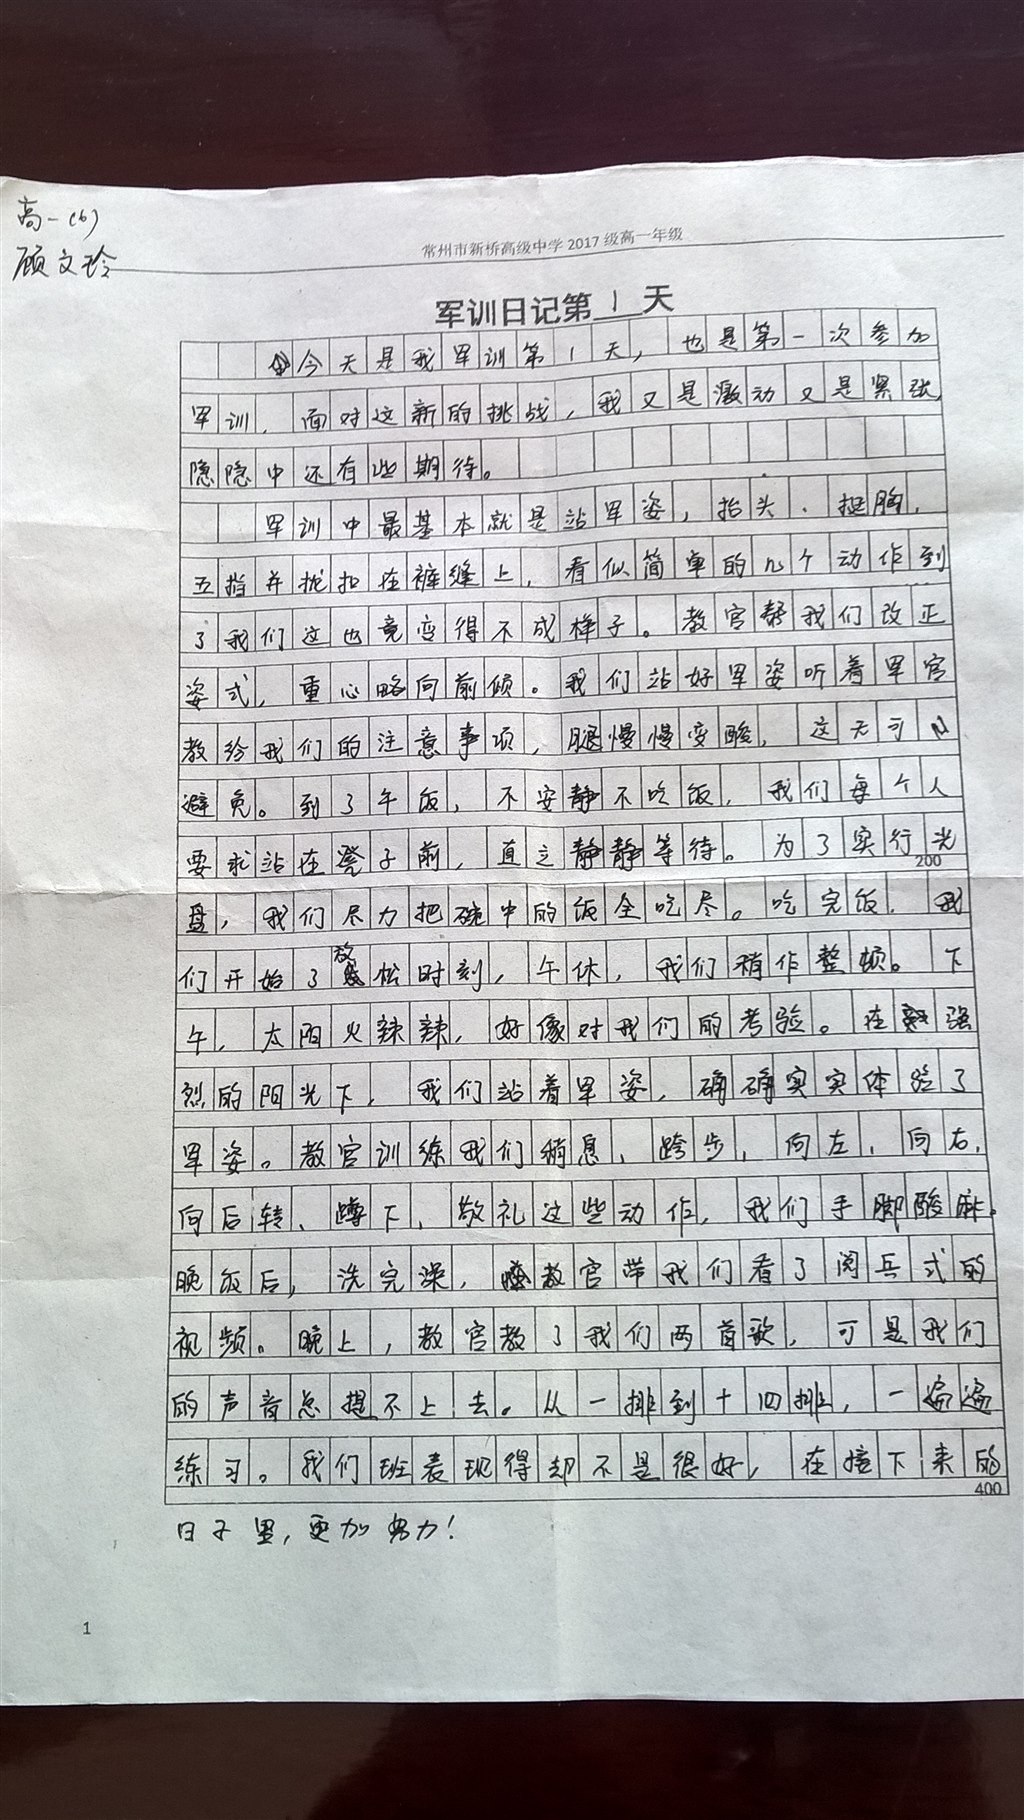 高一(6)
顾文玲
常州市新桥高级中学 2017 级高一年级
军训日记第 1 天
今天是我军训第1天，也是第一次参加
军训，面对这新的挑战，我又是激动又是紧张，
隐隐中还有些期待。
军训中最基本就是站军姿，抬头、挺胸，
五指并拢扣在裤缝上，看似简单的几个动作到
了我们这也竟变得不成样子。教官帮我们改正
姿式，重心略向前倾。我们站好军姿听着军官
教给我们的注意事项，腿慢慢变酸，这无可
避免。到了午饭，不安静不吃饭，我们每个人
要求站在凳子前，直立静静等待。为了实行光
200
盘，我们尽力把碗中的饭全吃尽。吃完饭，我
们开始了放松时刻，午休，我们稍作整顿。下
午，太阳火辣辣，好像对我们的考验。在强
烈的阳光下，我们站着军姿，确确实实体验了
军姿。教官训练我们稍息、跨步，向左，向右，
向后转、蹲下、敬礼这些动作，我们手脚酸麻。
晚饭后，洗完澡，教官带我们看了阅兵式的
视频。晚上，教官教了我们两首歌，可是我们
的声音总提不上去。从一排到十四排，一遍遍
练习。我们班表现得却不是很好，在接下来的
400
日子里，更加努力！
1